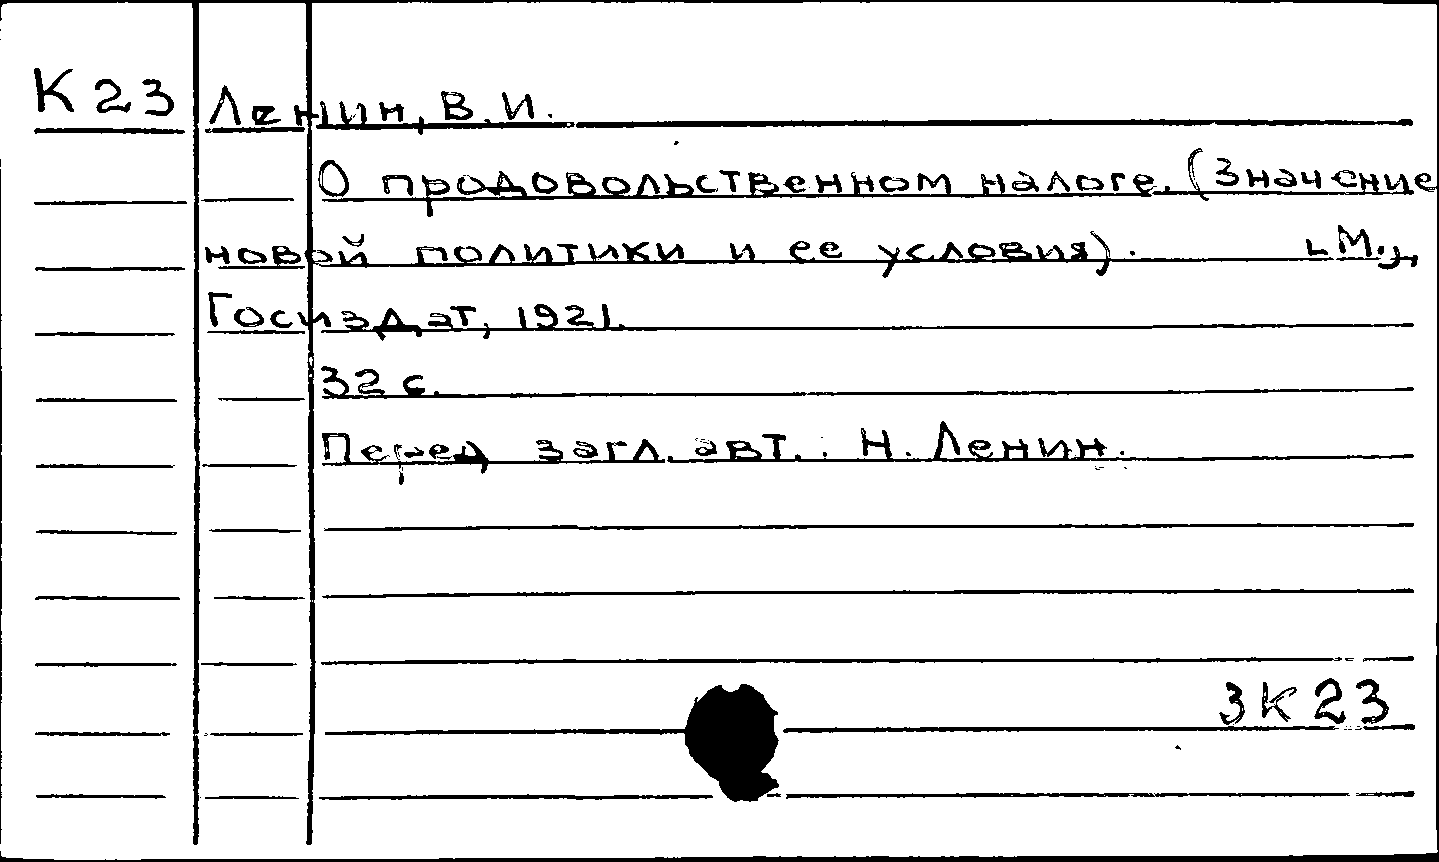 К23 Ленин, В.И.
О продовольственном налоге. (Значение
новой политики и ее условия). [М.],
Госиздат, 1921.
32 с.
Перед загл. авт.: Н. Ленин.
3К23